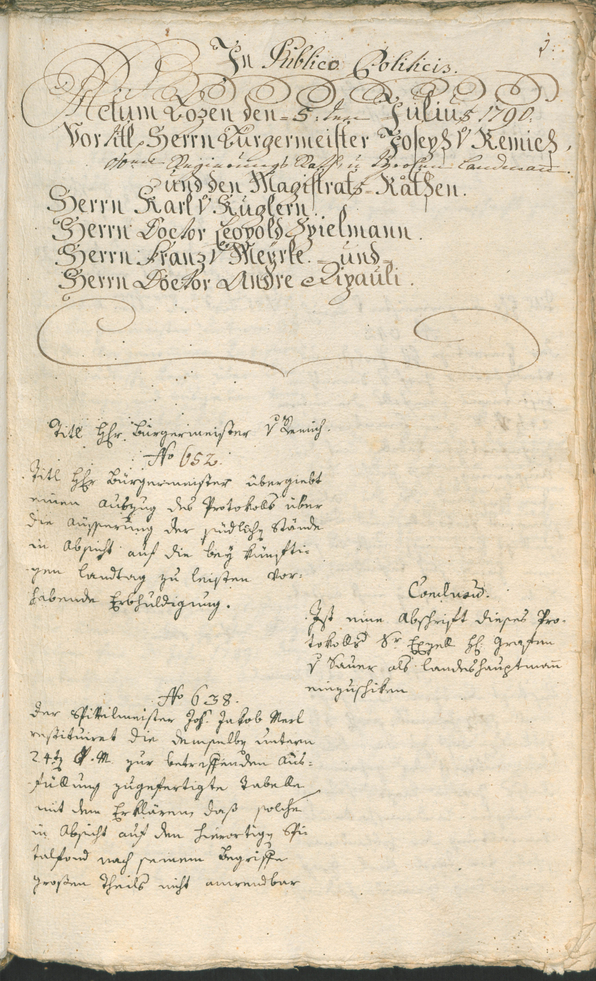 In Publico Politicis.
Actum Bozen den 5.ten Julius 1790.
Vor titl. Herrn Bürgermeister Joseph V Remich,
und den Magistrats Räthen.
Herrn Karl V Kuglern.
Herrn Doctor Leopold Spielmann.
Herrn Franz V Meyrle. und
Herrn Doctor Andre Ripauli.
Titl Hhr. Bürgermeister V Remich.
No 652.
Titl Hhr Bürgermeister übergiebt
einen Auszug des Protokolls über
die Äusserung der südlichn Stände
in Absicht auf die bey künfti-
gen Landtag zu leisten vor-
habende Erbhuldigung.
Conclusum.
Ist eine Abschrift dieses Pro-
tokolls Sr Exzell H. Grafen
V Sauer als Landeshauptmann
einzuschiken
No 638.
Der Spittlmeister Jos. Jakob Merl
restituiret die demselbn unterm
24 t. M. zur betreffenden Aus-
füllung zugefertigte Tabelle
mit dem Erklären, daß solche
in Absicht auf den hierortign Spi-
talfond nach seinem Begriffe
großen Theils nicht anwendbar